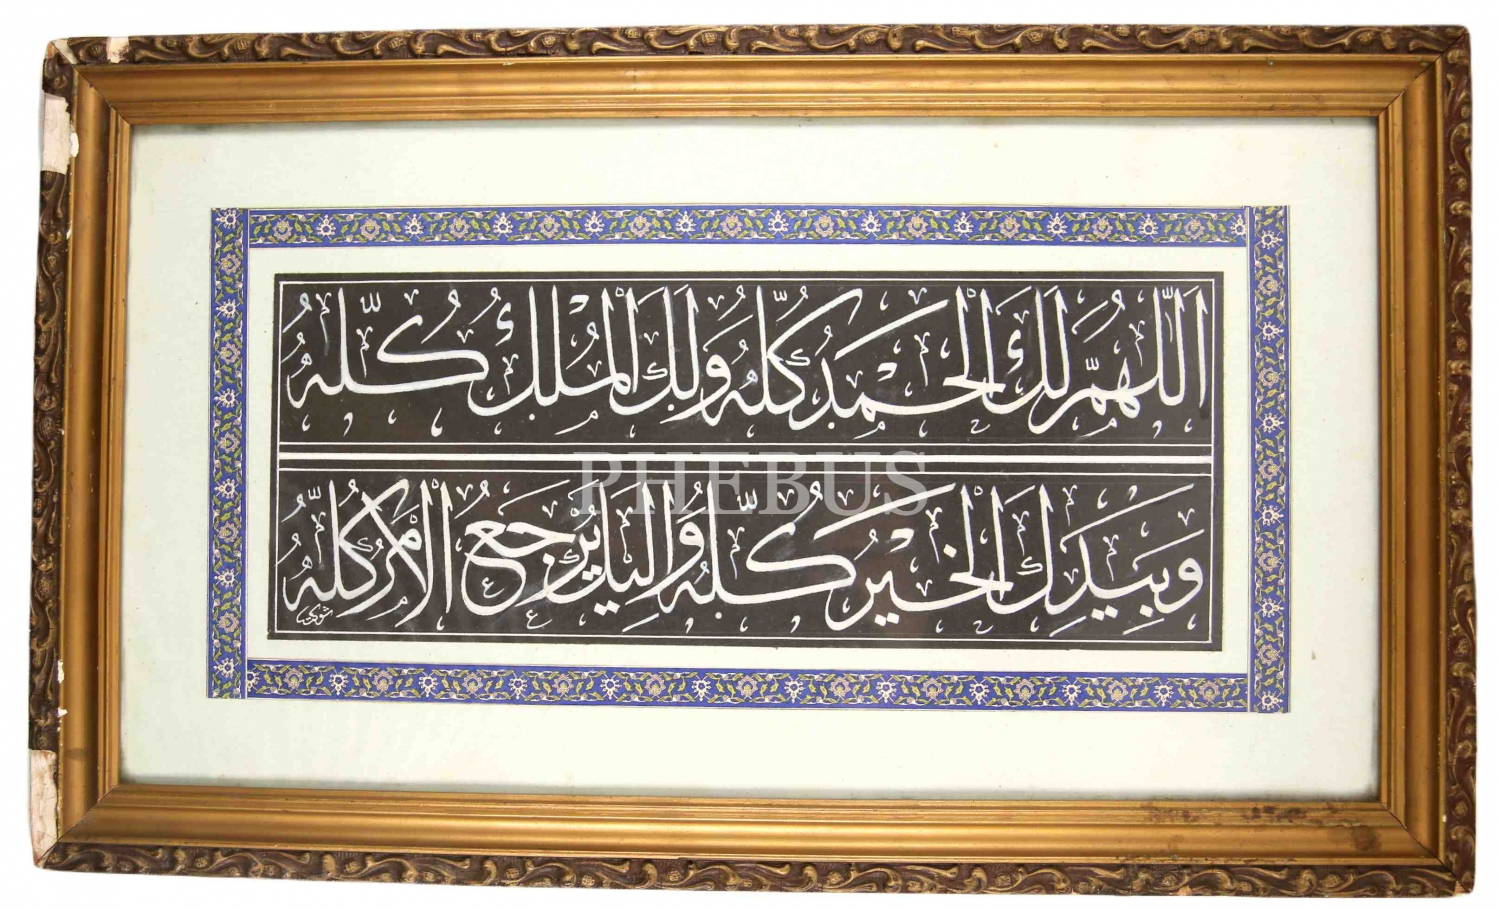 اَللّٰهُمَّ لَكَ الْحَمْدُ كُلُّهُ وَلَكَ الْمُلْكُ كُلُّهُ
وَبِيَدِكَ الْخَيْرُ كُلُّهُ وَاِلَيْكَ يُرْجَعُ الْاَمْرُ كُلُّهُ
PHEBUS